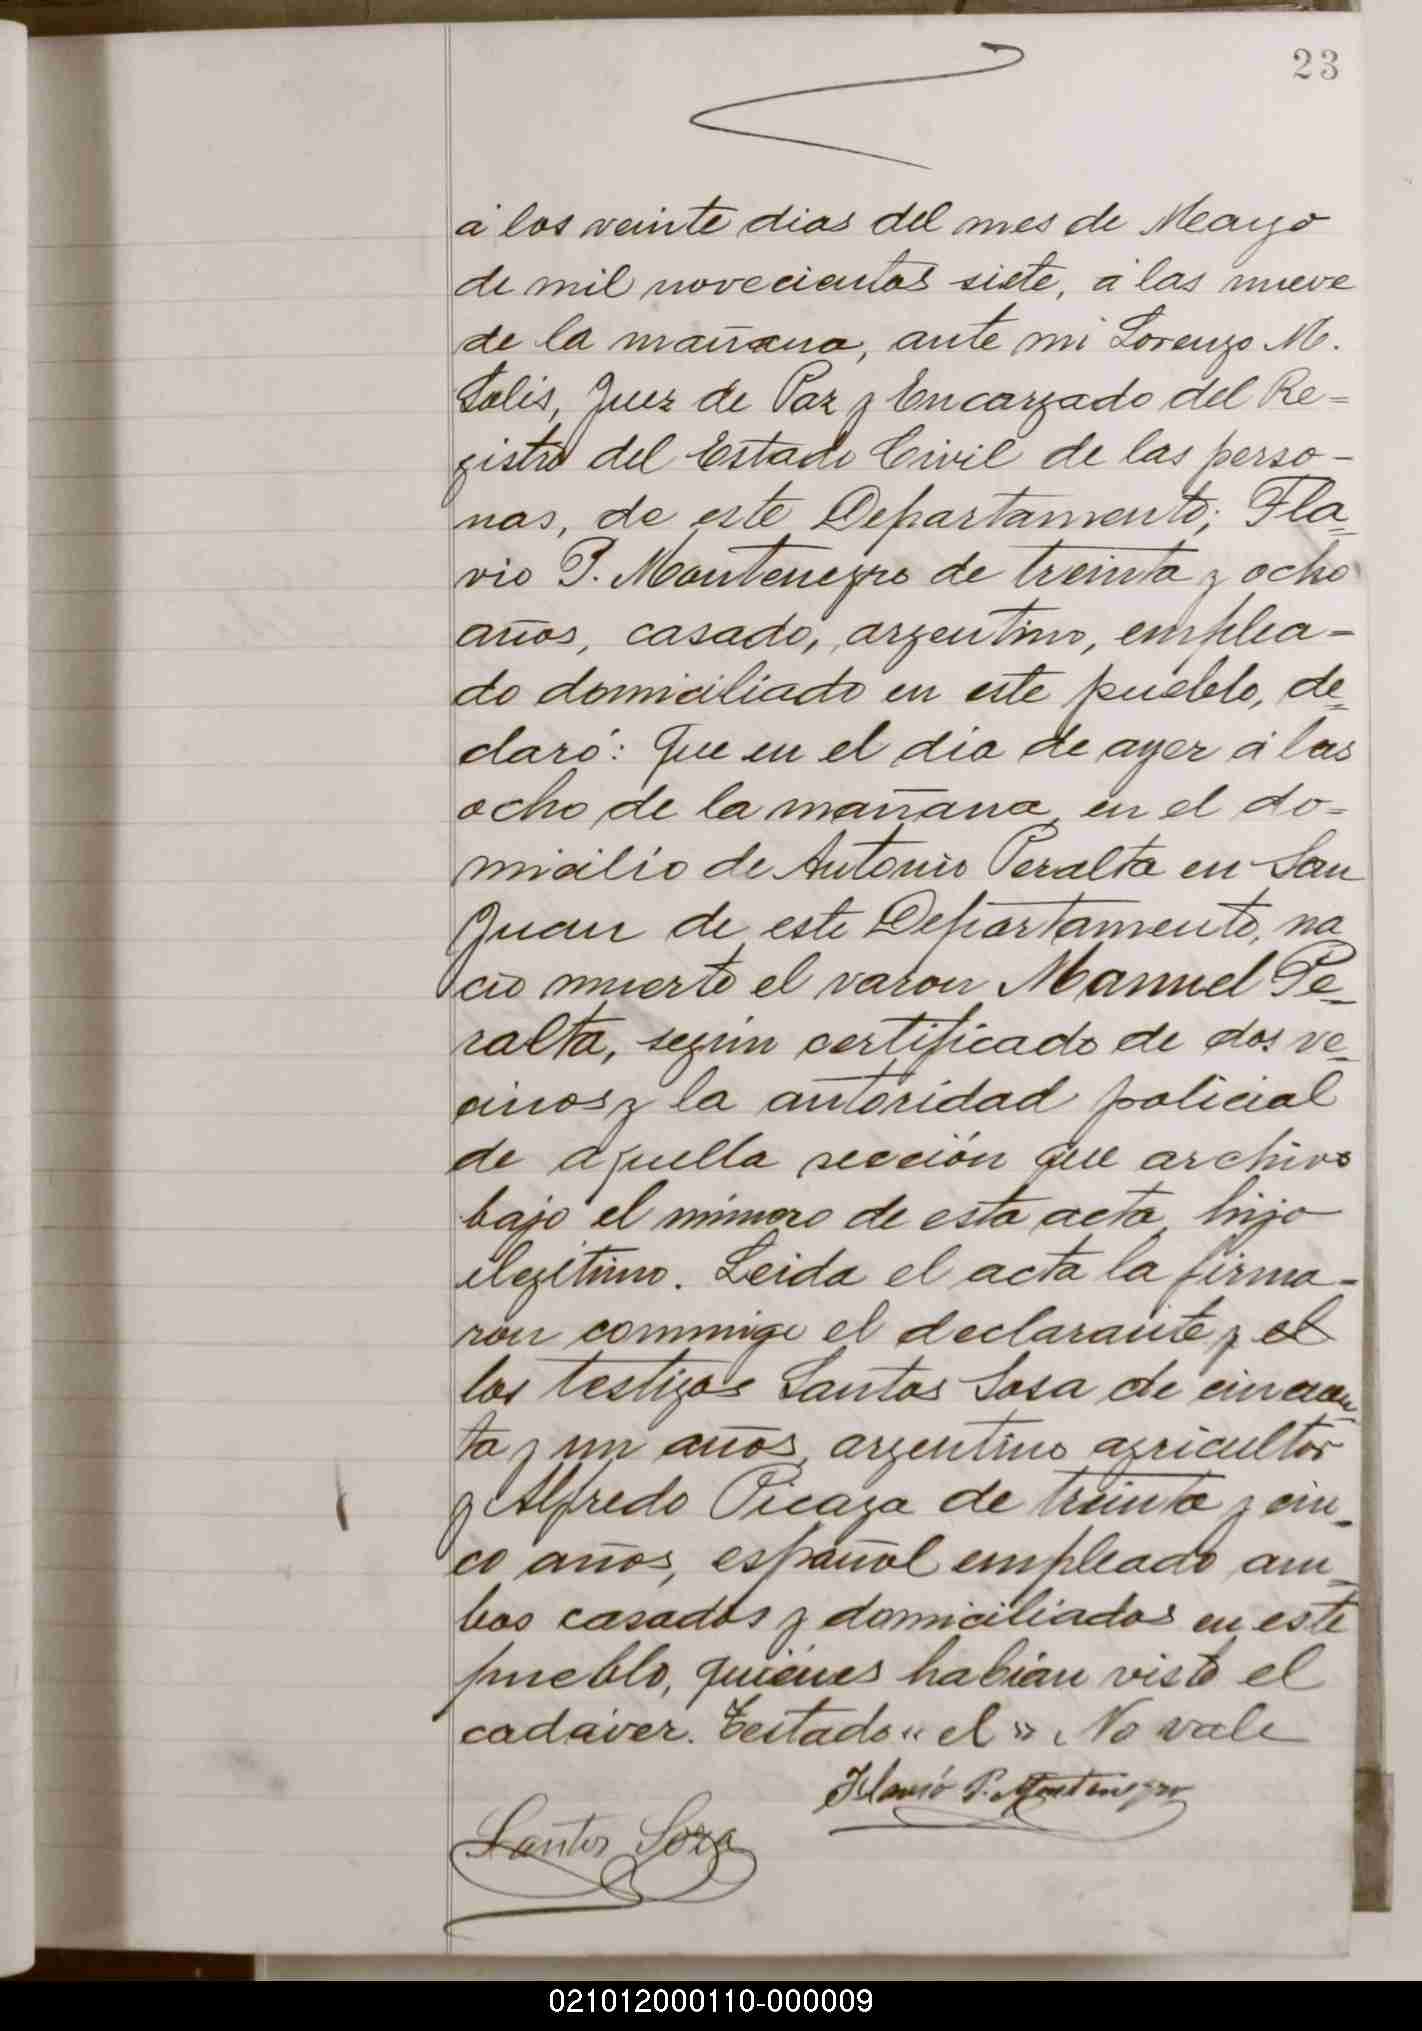 23
á los veinte dias del mes de Mayo
de mil novecientos siete, á las nueve
de la mañana, ante mi Lorenzo M.
Solis, Juez de Paz y Encargado del Re=
gistro del Estado Civil de las perso-
nas, de este Departamento; Fla=
vio P. Montenegro de treinta y ocho
años, casado, argentino, emplea-
do domiciliado en este pueblo, de=
claró: Que en el dia de ayer á las
ocho de la mañana, en el do=
micilio de Antonio Peralta en San
Juan de este Departamento, na
ció muerto el varon Manuel Pe=
ralta, según certificado de dos ve=
cinos y la autoridad policial
de aquella sección que archivo
bajo el número de esta acta, hijo
ilegítimo. Leida el acta la firma-
ron conmigo el declarante y el
los testigos Santos Sosa de cincuen
ta y un años, argentino agricultor
y Alfredo Picaza de treinta y cin=
co años, español empleado, am=
bos casados y domiciliados en este
pueblo, quiénes habian visto el
cadáver. Testado "el" No vale
Flavió P. Montenegro
Santos Soza
021012000110-000009